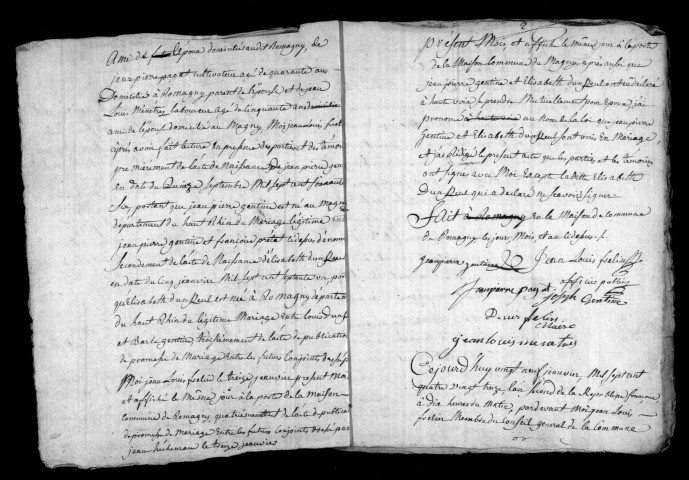 Ami de l'époux domicilié audit Romagny, de
jean pierre pagat cultivateur agé de quarante ans
Domicilié à Romagny parent de l'épouse et de jean
Louis Ménétres laboureur agé de cinquante ans
ami de l'épouse domicilié au Magny, Moi jean Louis
après avoir fait lecture en presence des parties et des témoins
premièrement de l'acte de Naissance de jean pierre gentine
en date du Quinze septembre Mil sept cent soixante
six, portant que jean pierre gentine est né au Magny
département du haut Rhin du Mariage légitime entre
jean pierre gentine et françoise ci dessus dénommés
secondement de l'acte de Naissance d'élisabeth
en date du cinq janvier Mil sept cent septante un
qu'Elisabeth est née à Romagny département
du haut Rhin du légitime Mariage entre Louis
et Barbe gentine, troisièmement de l'acte de publication
de promesse de Mariage entre les futurs conjoints dressé
Moi jean Louis le treize janvier present Mois
et affiché le Même jour à la porte de la Maison
commune de Romagny, quatrièmement de l'acte de publication
de promesse de Mariage entre les futurs conjoints dressé par
jean le treize janvier
2
présent Mois, et affiché le Même jour à la porte
de la Maison Commune de Magny après aussi que
jean pierre gentine et Elisabeth ont eu déclaré
à haute voix se prendre Mutuellement pour Epoux, j'ai
prononcé au Nom de la Loi que jean pierre
Gentine et Elisabeth sont unis en Mariage,
et j'ai rédigé le present acte que les parties et les témoins
ont signés avec Moi Excepté ladite Elisabeth
qui a déclaré ne sçavoir signer
Fait à Romagny en la Maison de commune
de Romagny les jour, Mois, et an ci dessus.
jean pierre gentine Jean Louis
jean pierre pagat officier public
joseph Gentine
Maire
jean louis menetres
Cejourd'huy vingt neuf janvier, Mil sept cent
quatre vingt treize, l'an second de la République française
à dix heures du Matin, pardevant Moi jean Louis
Membre du Conseil general de la Commune